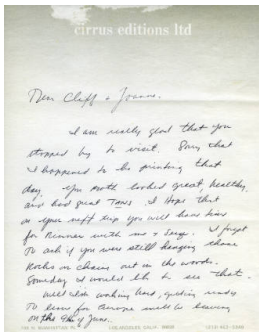 cirrus editions ltd
Dear Cliff & Joanne.
I am really glad that you
stopped by to visit. Sorry that
I happened to be printing that
day. You both looked great, healthy,
and had great TANS. I Hope that
on your next trip you will have time
for Dinner with me &
I forgot
to ask if you were still hanging those
Rocks on chains out in the woods.
Someday I would like to see that.
Well I'm working hard, getting ready
to leave for Europe will be leaving
on the of June.
LOS ANGELES CALIF